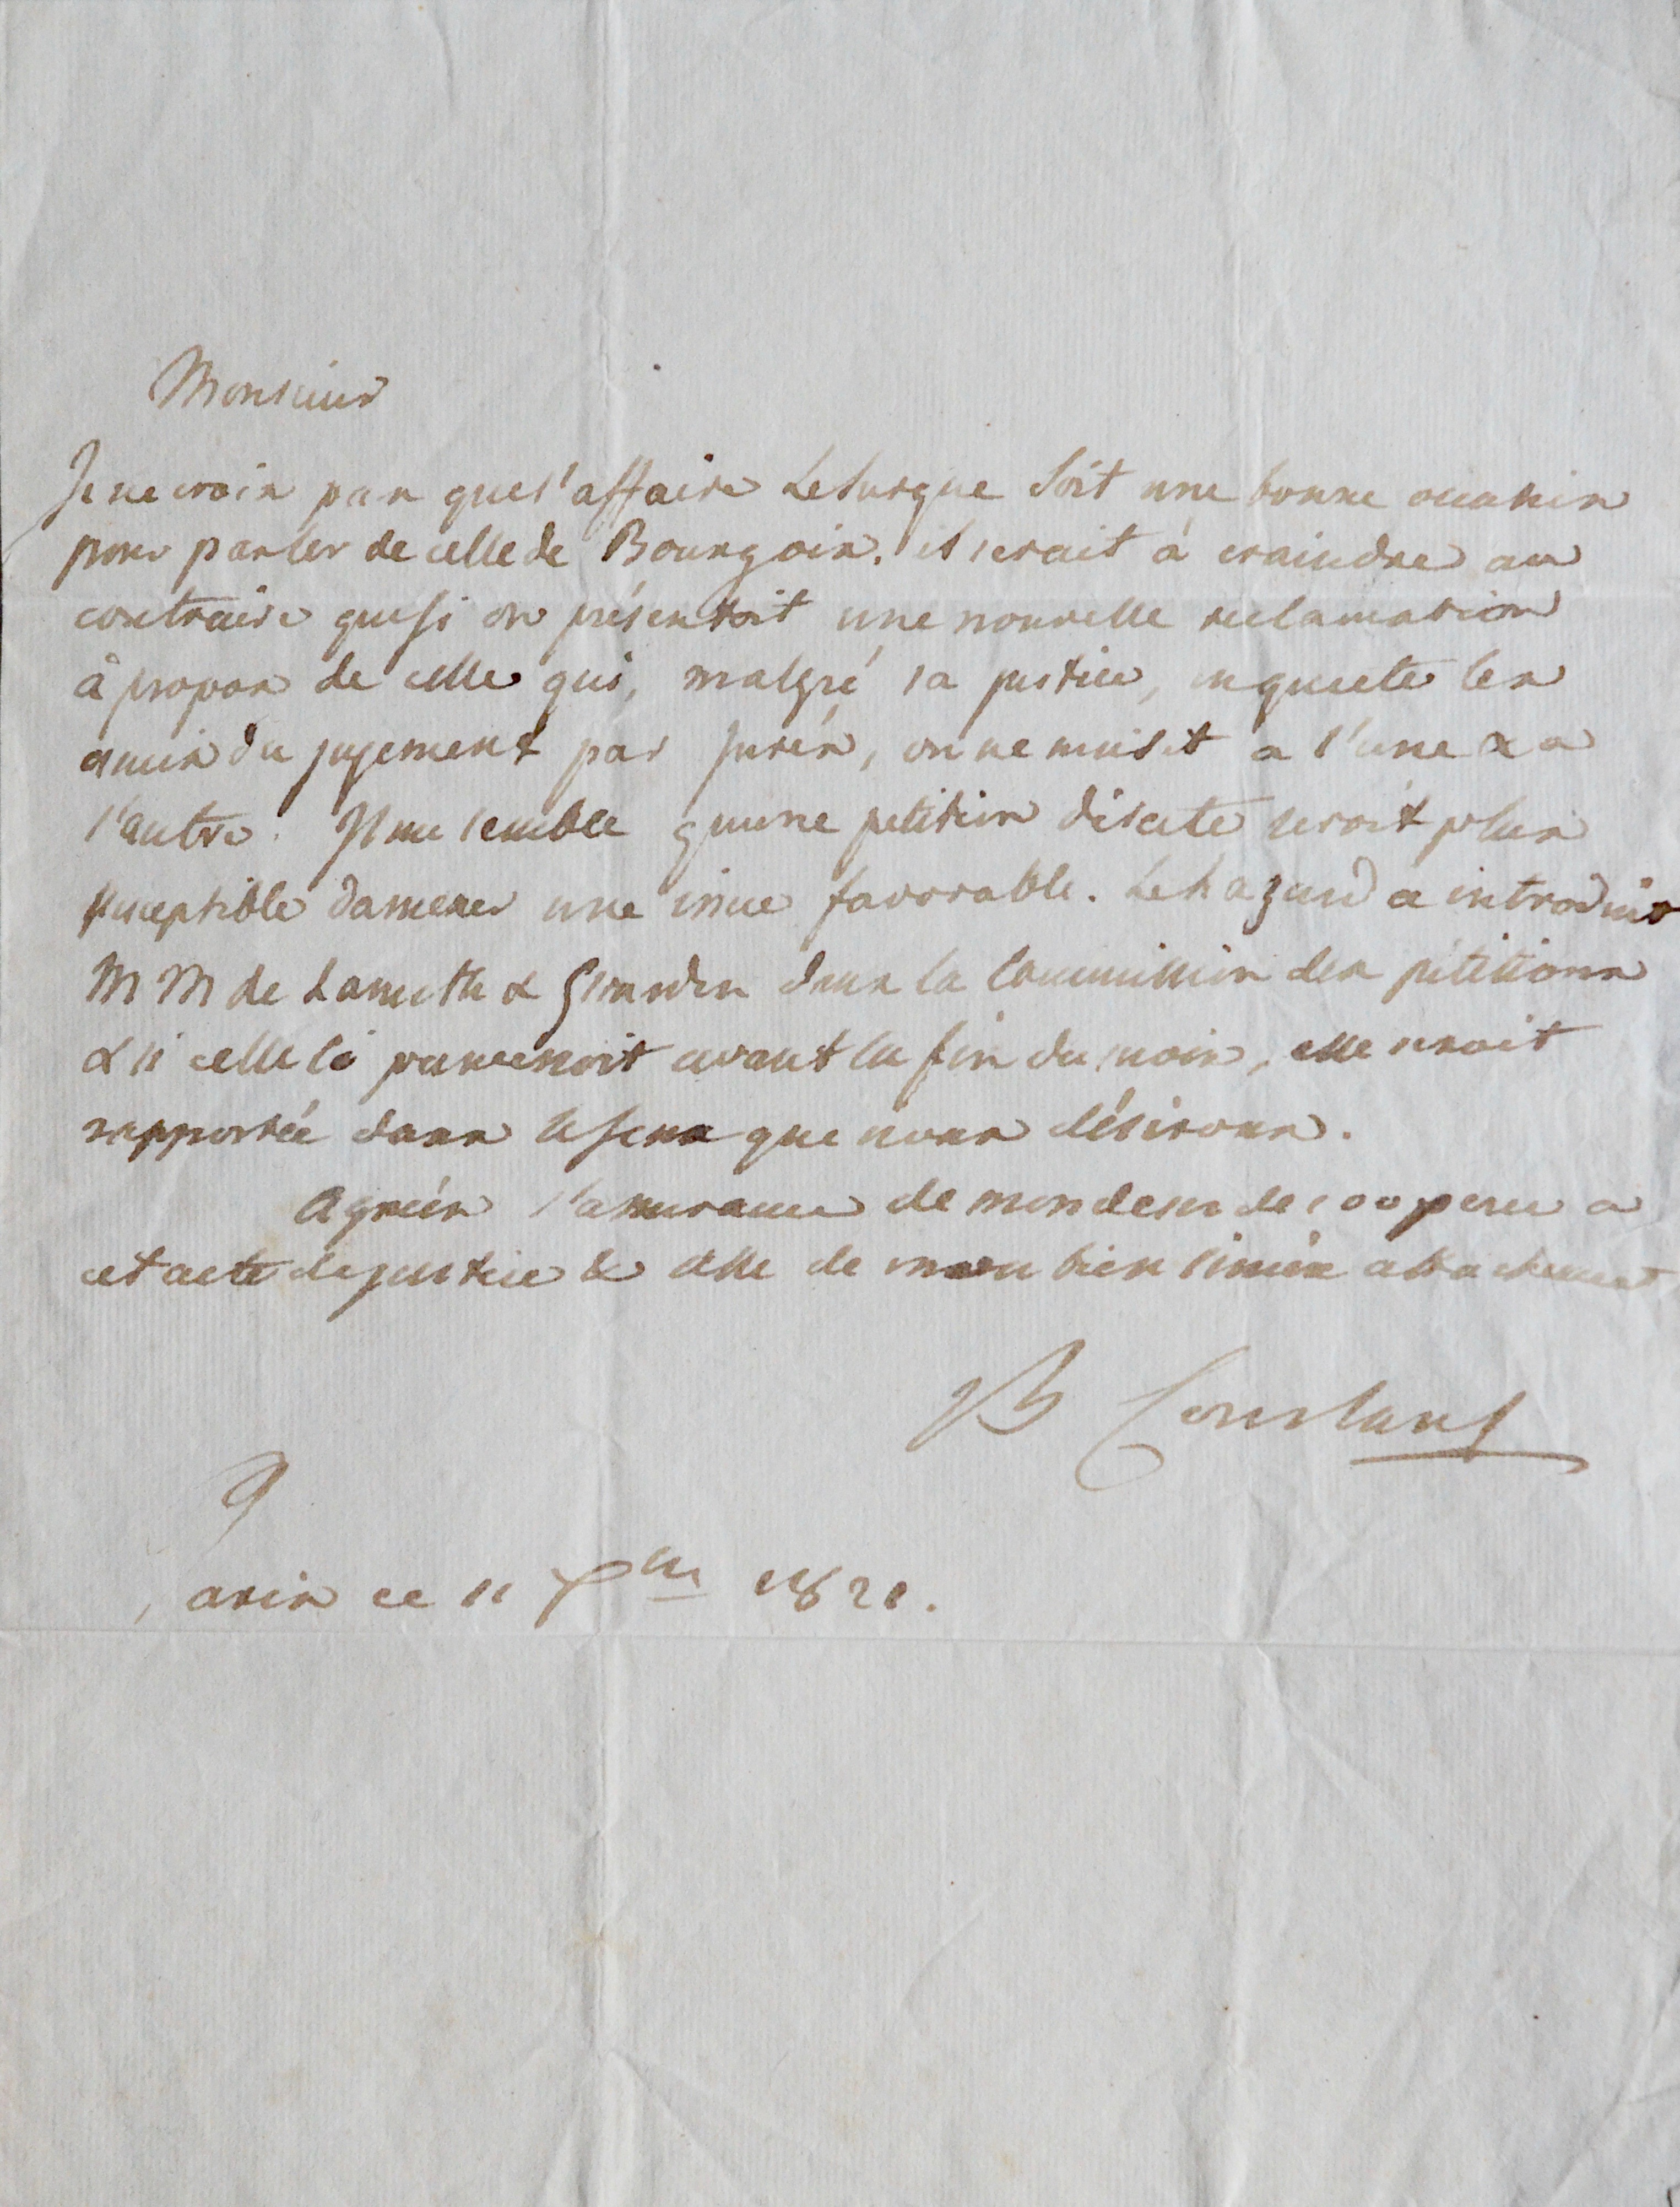 Monsieur
Je ne crois pas que l'affaire Lesurque soit une bonne occasion
pour parler de celle de Bourgoin. il serait à craindre au
contraire que si on présentoit une nouvelle reclamation
à propos de celle qui, malgré sa justice, inquiete les
amis du jugement par jurés, on ne nuisit a l'une & a
l'autre. Il me semble qu'une petition directe seroit plus
susceptible d'amener une issue favorable. Le hazard a introduit
MM de Lameth & Girardin dans la Commission des pétitions
& si celle ci parvenoit avant la fin du mois, elle seroit
rapportée dans le sens que nous désirons.
Agréez l'assurance de mon desir de coopérer a
cet acte de justice & celle de mon bien sincère attachement
B Constant
Paris ce 11 Xbre 1821.